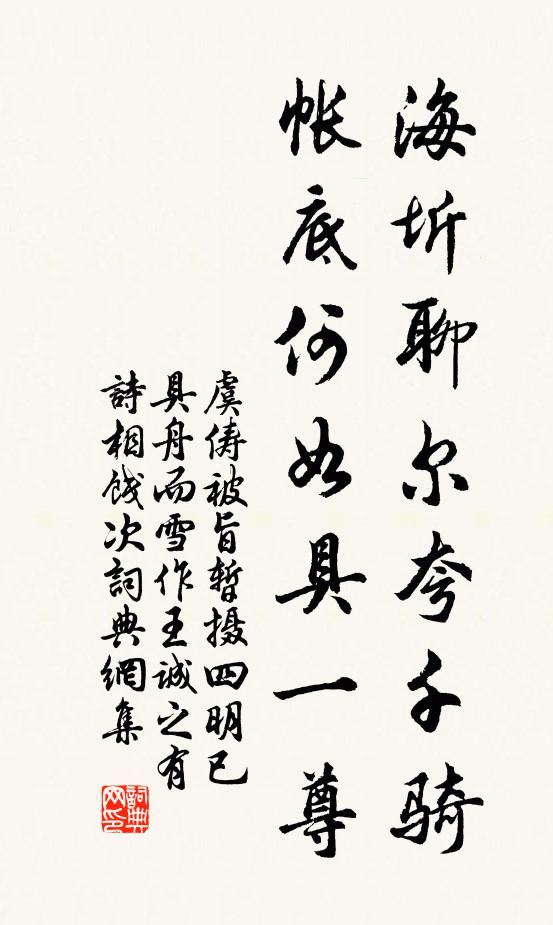 海圻聊尔夸千骑
帐底何如具一尊
虞俦被旨暂摄四明已
具舟而雪作王诚之有
詩相餞次詞典網集
詞典
网印